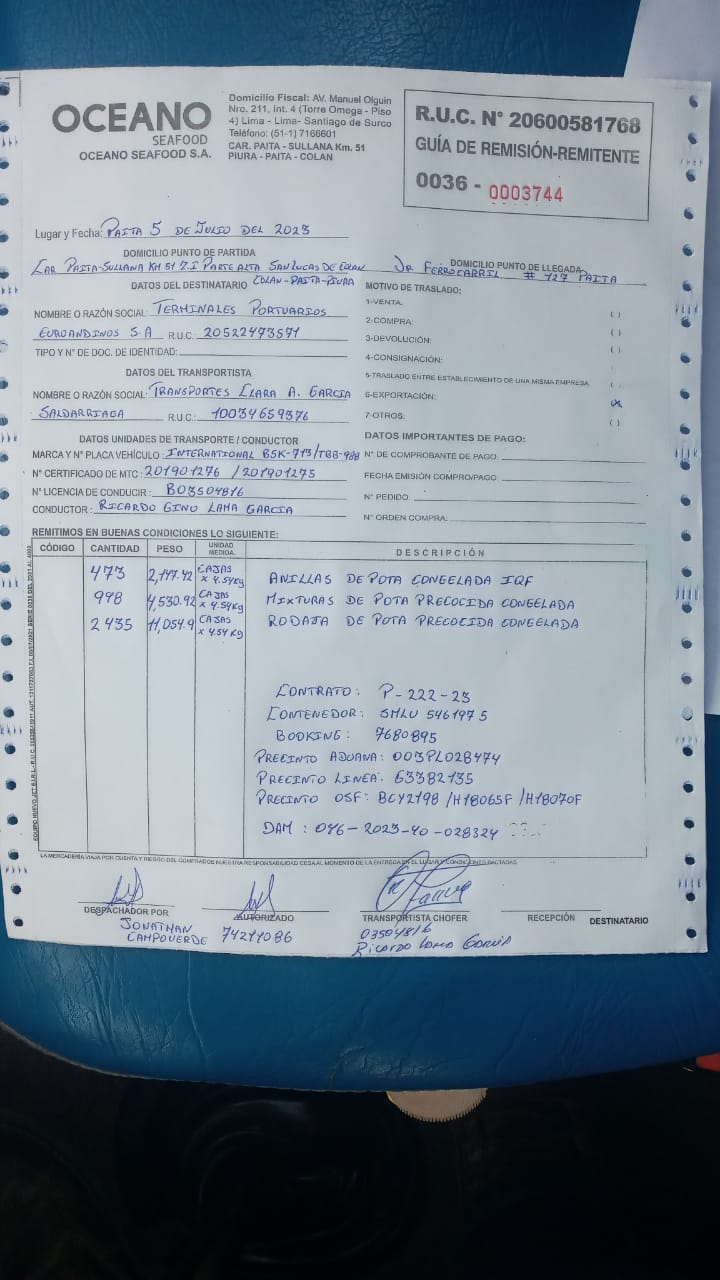 OCEANO
SEAFOOD
OCEANO SEAFOOD S.A.
Domicilio Fiscal: AV. Manuel Olguin
Nro. 211, Int. 4 (Torre Omega - Piso
4) Lima - Lima- Santiago de Surco
Teléfono: (51-1) 7166601
CAR. PAITA - SULLANA Km. 51
PIURA - PAITA - COLAN
R.U.C. N° 20600581768
GUÍA DE REMISIÓN-REMITENTE
0036 - 0003744
Lugar y Fecha: PAITA 5 DE JULIO DEL 2023
DOMICILIO PUNTO DE PARTIDA
CAR PAITA-SULLANA KM 51 Z.I PARTE ALTA SAN LUCAS DE COLAN
COLAN-PAITA-PIURA
DOMICILIO PUNTO DE LLEGADA
JR FERROCARRIL # 127 PAITA
DATOS DEL DESTINATARIO
NOMBRE O RAZÓN SOCIAL: TERMINALES PORTUARIOS
EUROANDINOS S.A R.U.C. 20522473571
TIPO Y N° DE DOC. DE IDENTIDAD:
MOTIVO DE TRASLADO:
1-VENTA: ( )
2-COMPRA: ( )
3-DEVOLUCIÓN: ( )
4-CONSIGNACIÓN:
5-TRASLADO ENTRE ESTABLECIMIENTO DE UNA MISMA EMPRESA (
6-EXPORTACIÓN: (x)
7-OTROS: ( )
DATOS DEL TRANSPORTISTA
NOMBRE O RAZÓN SOCIAL: TRANSPORTES CLARA A. GARCIA
SALDARRIAGA R.U.C.: 10034659376
DATOS UNIDADES DE TRANSPORTE / CONDUCTOR
MARCA Y N° PLACA VEHÍCULO: INTERNATIONAL B5K-713/TBB-988
N° CERTIFICADO DE MTC: 201901276 / 201901275
N° LICENCIA DE CONDUCIR: B03504816
CONDUCTOR: RICARDO GINO LAMA GARCIA
DATOS IMPORTANTES DE PAGO:
N° DE COMPROBANTE DE PAGO:
FECHA EMISIÓN COMPRO/PAGO:
N° PEDIDO:
N° ORDEN COMPRA:
REMITIMOS EN BUENAS CONDICIONES LO SIGUIENTE:
CÓDIGO CANTIDAD PESO UNIDAD MEDIDA. DESCRIPCIÓN
473 2,147.42 CAJAS x 4.54Kg ANILLAS DE POTA CONGELADA IQF
998 4,530.92 CAJAS x 4.54Kg MIXTURAS DE POTA PRECOCIDA CONGELADA
2435 11,054.9 CAJAS x 4.54Kg RODAJA DE POTA PRECOCIDA CONGELADA
CONTRATO: P-222-23
CONTENEDOR: SMLU 546197 5
BOOKING: 7680895
PRECINTO ADUANA: 003PL028474
PRECINTO LINEA: 63382135
PRECINTO OSF: BCY2198 /H1806SF /H18070F
DAM: 046-2023-40-028324
LA MERCADERÍA VIAJA POR CUENTA Y RIESGO DEL COMPRADOR NUESTRA RESPONSABILIDAD CESA AL MOMENTO DE LA ENTREGA EN EL LUGAR Y CONDICIONES PACTADAS.
DESPACHADOR POR AUTORIZADO TRANSPORTISTA CHOFER RECEPCIÓN DESTINATARIO
JONATHAN
CAMPOVERDE 74211086
03504816
Ricardo Lama Garcia